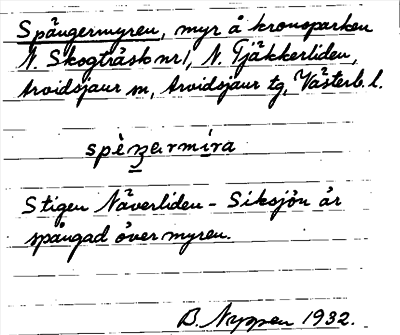 Spångermyren, myr å kronoparken
N. Skogträsk nr 1, N. Tjäkkerliden,
Arvidsjaur sn, Arvidsjaur tg, Västerb. l.
spèŋermíra
Stigen Näverliden - Siksjön är
spångad över myren.
B. Nyppen 1932.